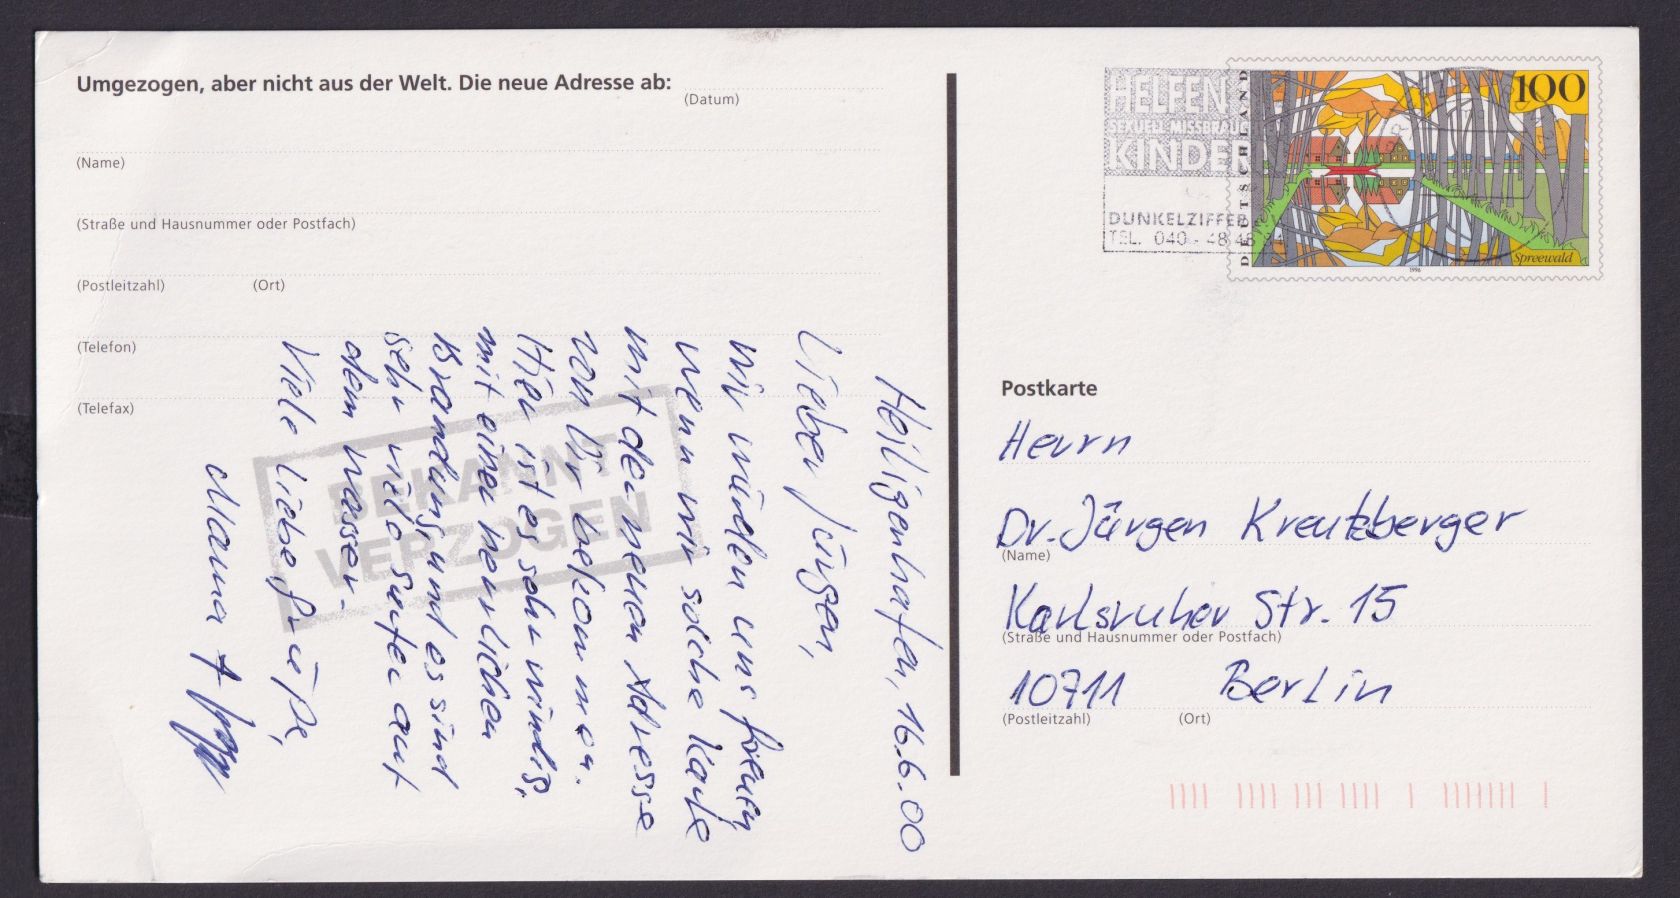 Umgezogen, aber nicht aus der Welt. Die neue Adresse ab:
(Datum)
(Name)
(Straße und Hausnummer oder Postfach)
(Postleitzahl) (Ort)
(Telefon)
(Telefax)
Heiligenhafen, 16.6.00
Lieber Jürgen,
wir würden uns freuen
wenn wir solche Karte
mit der neuen Adresse
von Dir bekommen.
Hier ist es sehr windig,
mit einer herrlichen
Brandung, und es sind
sehr viele Surfer auf
dem Wasser.
Viele liebe Grüße,
Mama +
BEKANNT
VERZOGEN
HELFEN
SEXUELL MISSBRAUC
KINDER
DUNKELZIFFER
TEL. 040 - 48 48
DEUTSCHLAND
100
Spreewald
1996
Postkarte
Herrn
Dr. Jürgen Kreutzberger
(Name)
Karlsruher Str. 15
(Straße und Hausnummer oder Postfach)
10711 Berlin
(Postleitzahl) (Ort)